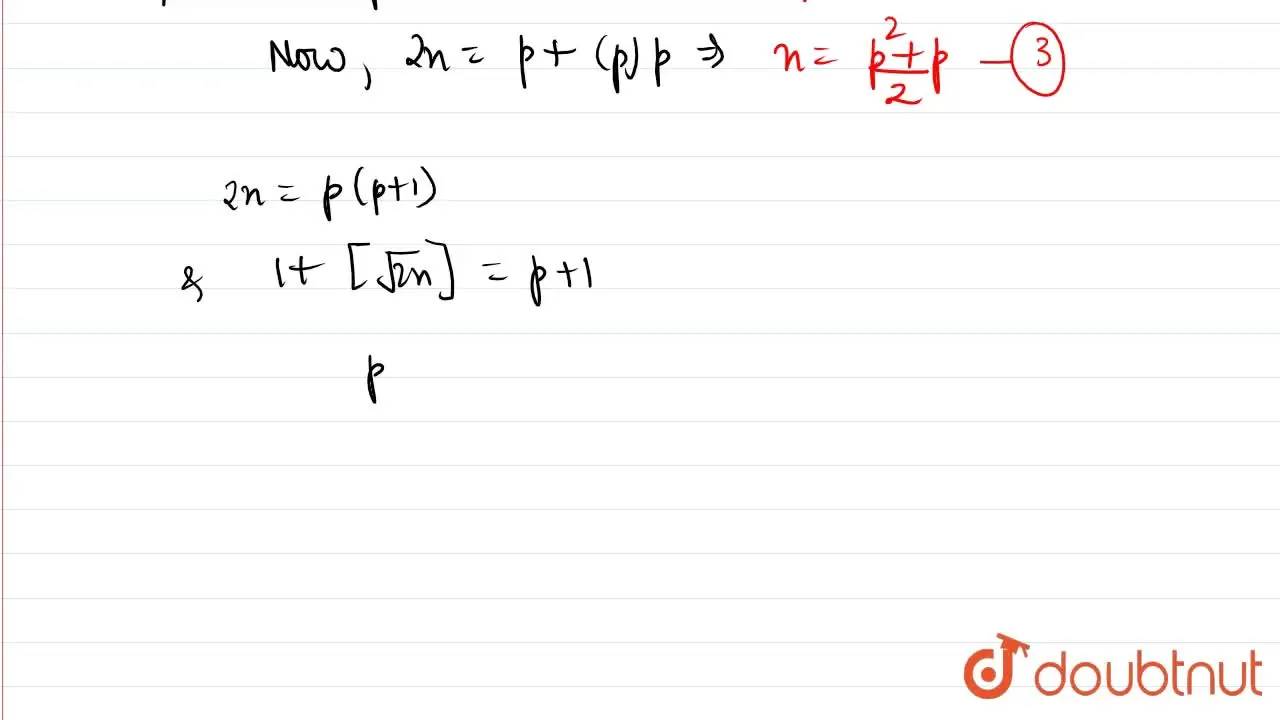 Now, 2n = p + (p) p ⇒ n = p² + p / 2 — 3
2n = p (p+1)
& 1 + [√2n] = p + 1
p
doubtnut